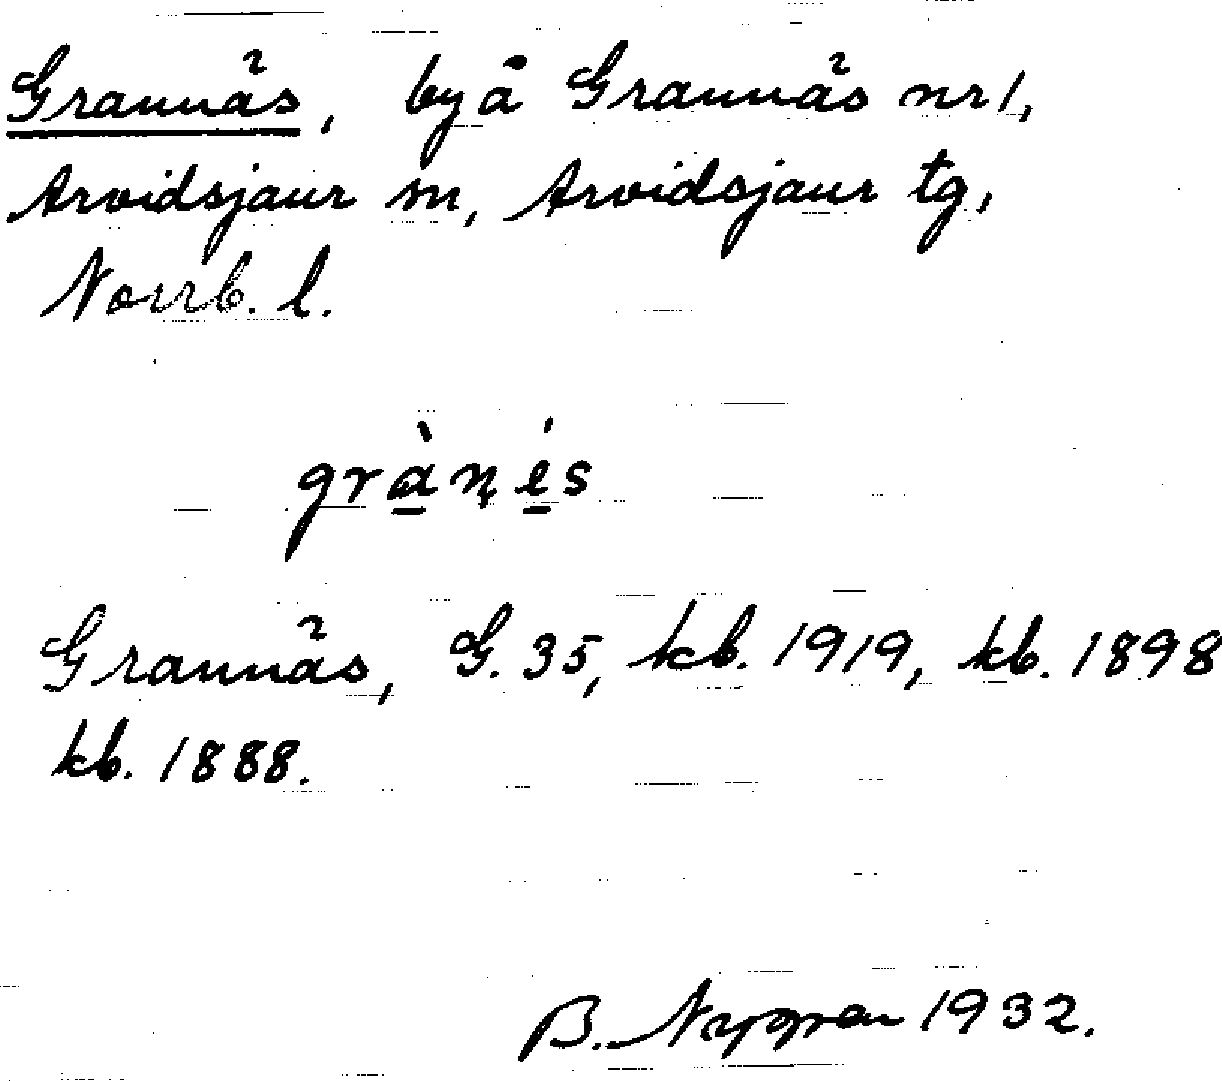 Grannäs, by å Grannäs nr 1,
Arvidsjaur sn, Arvidsjaur tg,
Norrb. l.
grànés
Grannäs, G. 35, kb. 1919, kb. 1898
kb. 1888.
B. Nygren 1932.